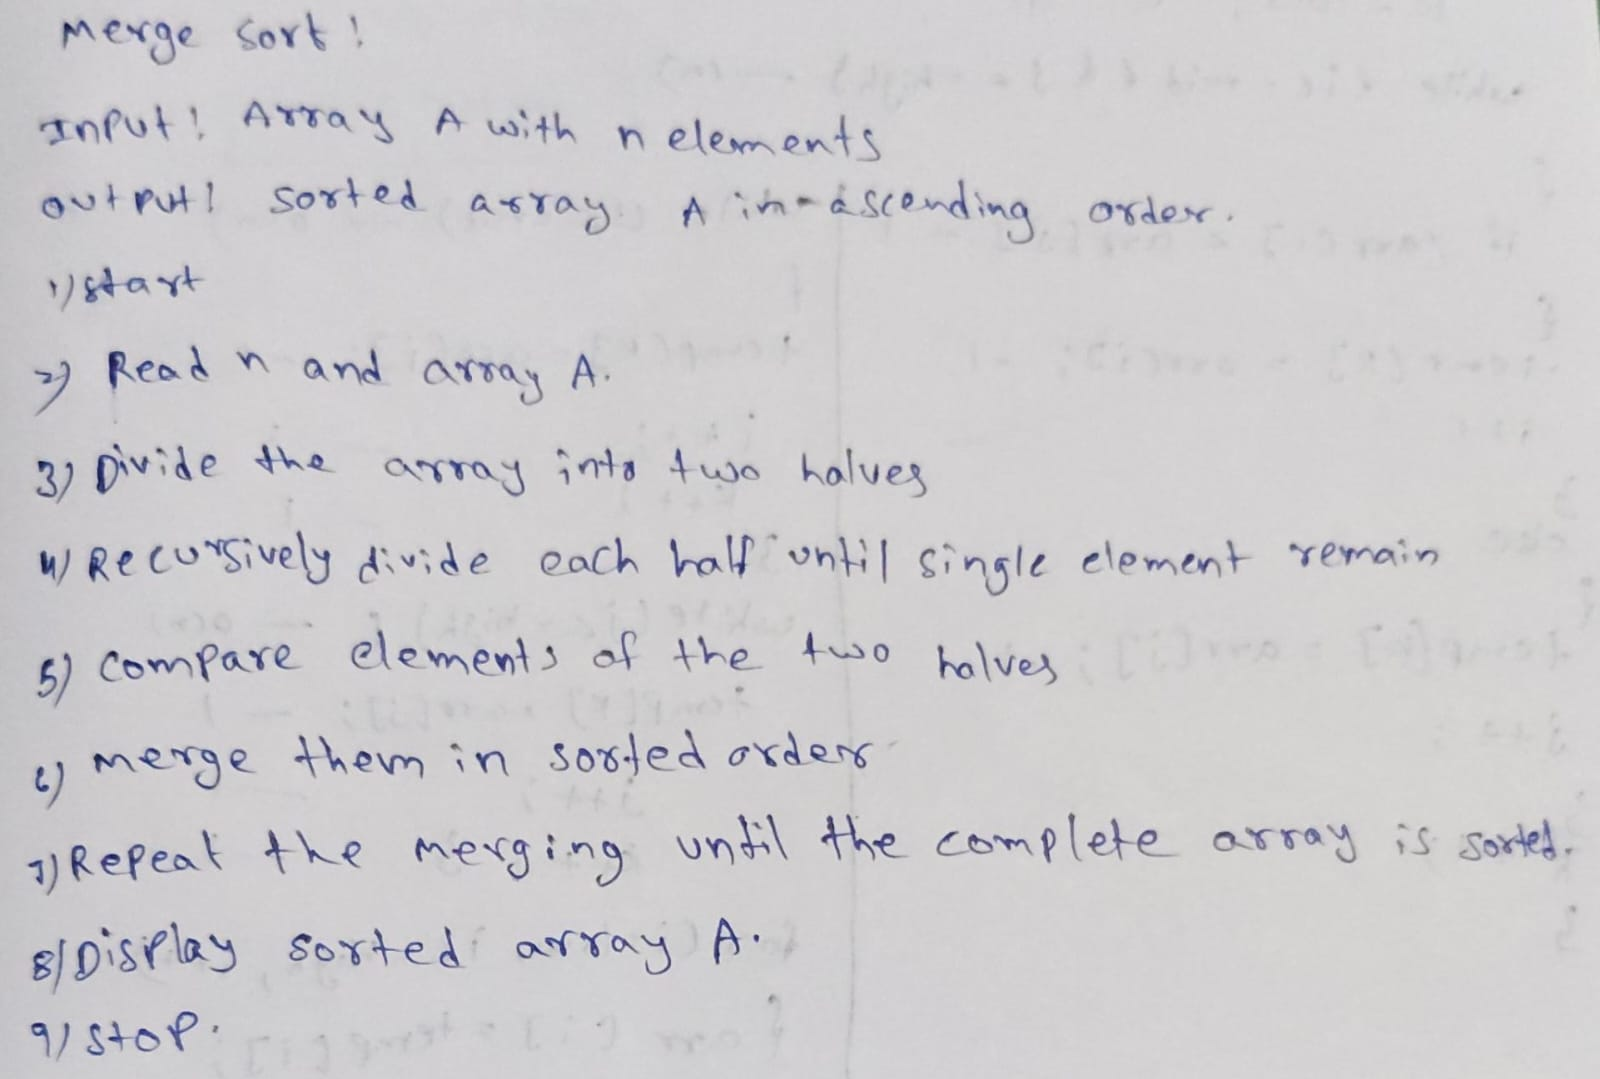 Merge Sort:
Input: Array A with n elements
Output: sorted array A in ascending order.
1) start
2) Read n and array A.
3) Divide the array into two halves
4) Recursively divide each half until single element remain
5) compare elements of the two halves
6) merge them in sorted order
7) Repeat the merging until the complete array is sorted.
8) Display sorted array A.
9) Stop.